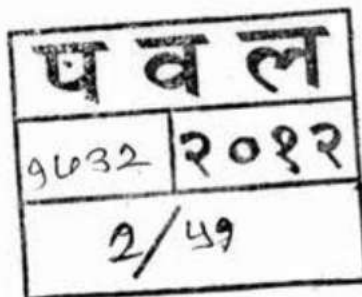 प व ल
१७३२ २०१२
२/५१